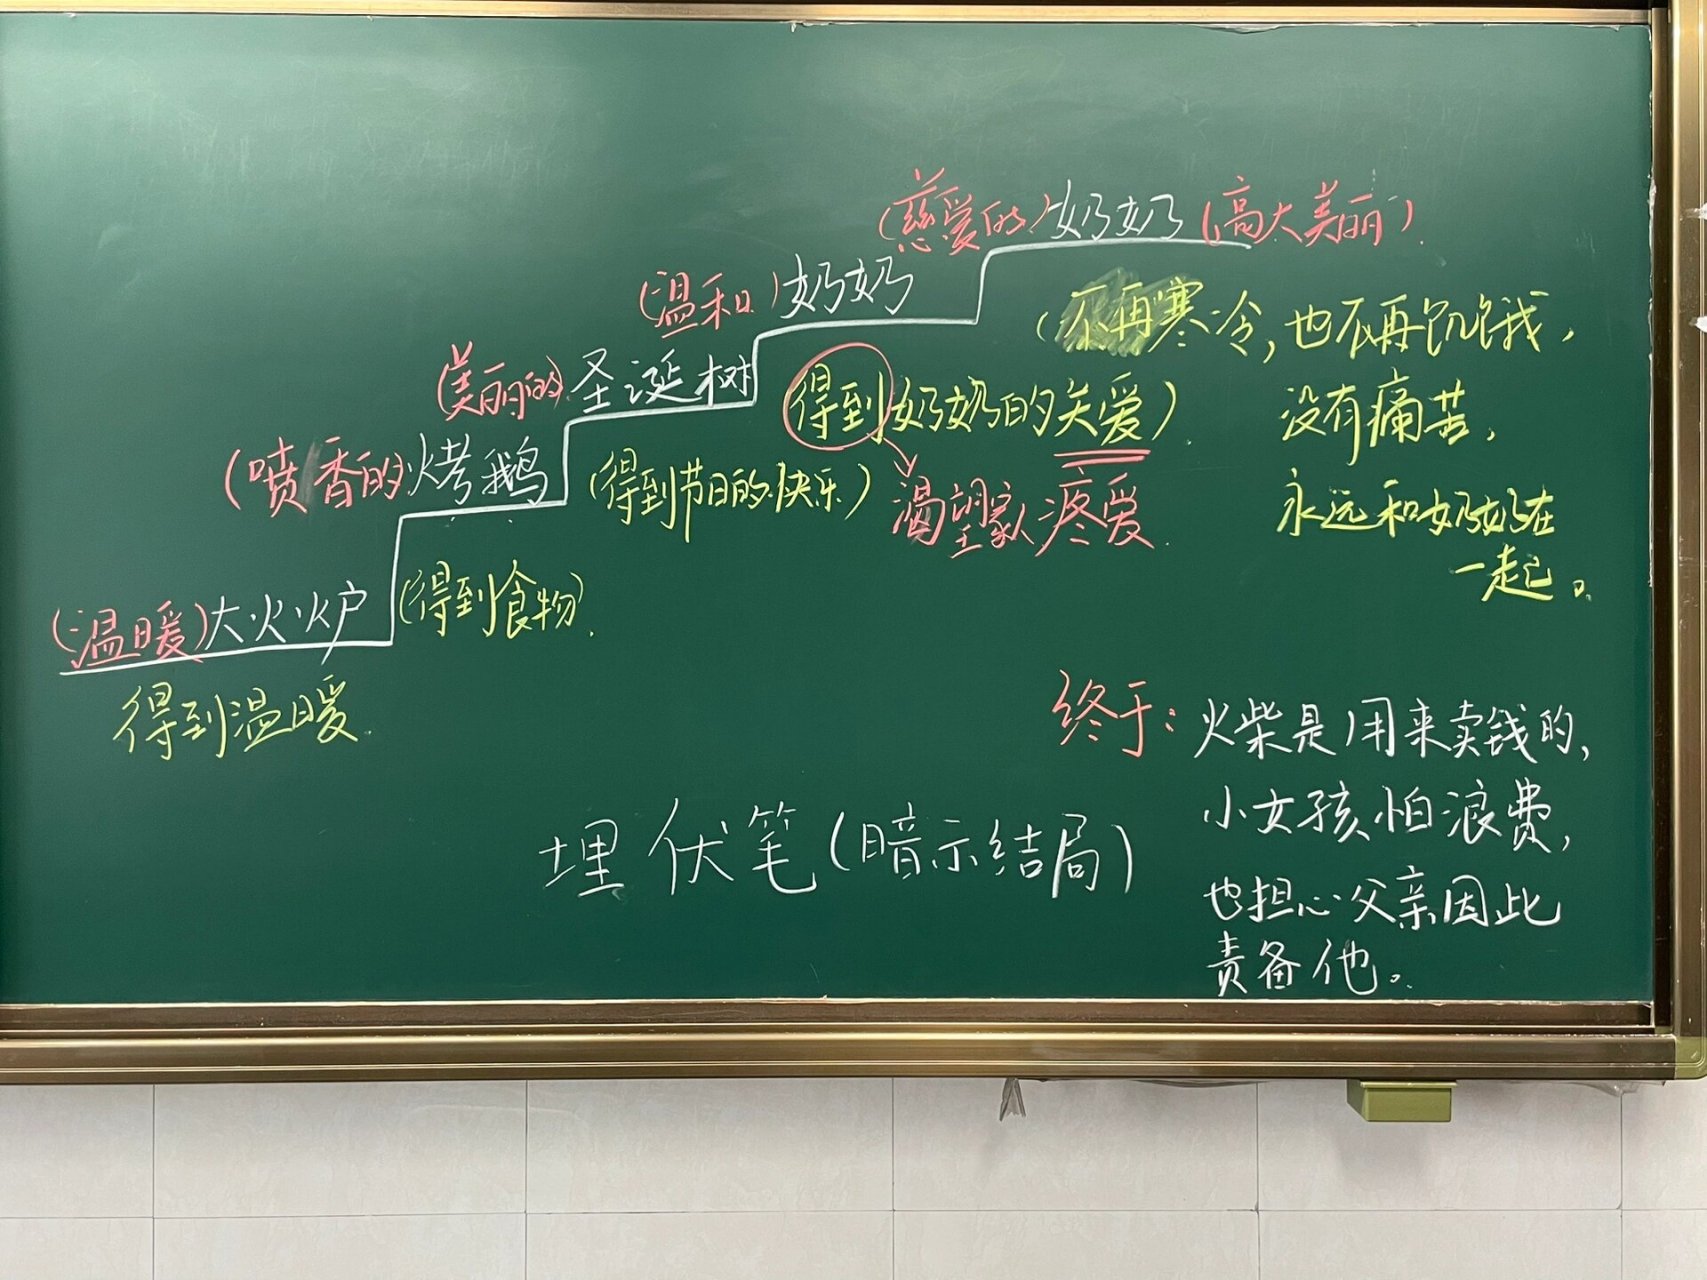 (慈爱的)奶奶(高大美丽)
(温和)奶奶
(不再寒冷,也不再饥饿,
没有痛苦,
永远和奶奶在
一起。
(美丽的)圣诞树
(得到奶奶的关爱)
渴望家人疼爱
(喷香的)烤鹅
(得到节日的快乐)
(温暖)大火炉
(得到食物)
得到温暖
终于:火柴是用来卖钱的,
小女孩怕浪费,
也担心父亲因此
责备他。
埋伏笔(暗示结局)